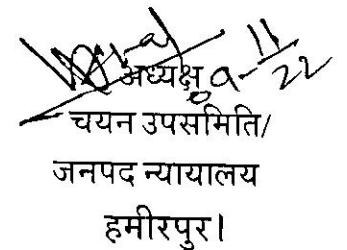 अध्यक्ष
चयन उपसमिति/
जनपद न्यायालय
हमीरपुर।